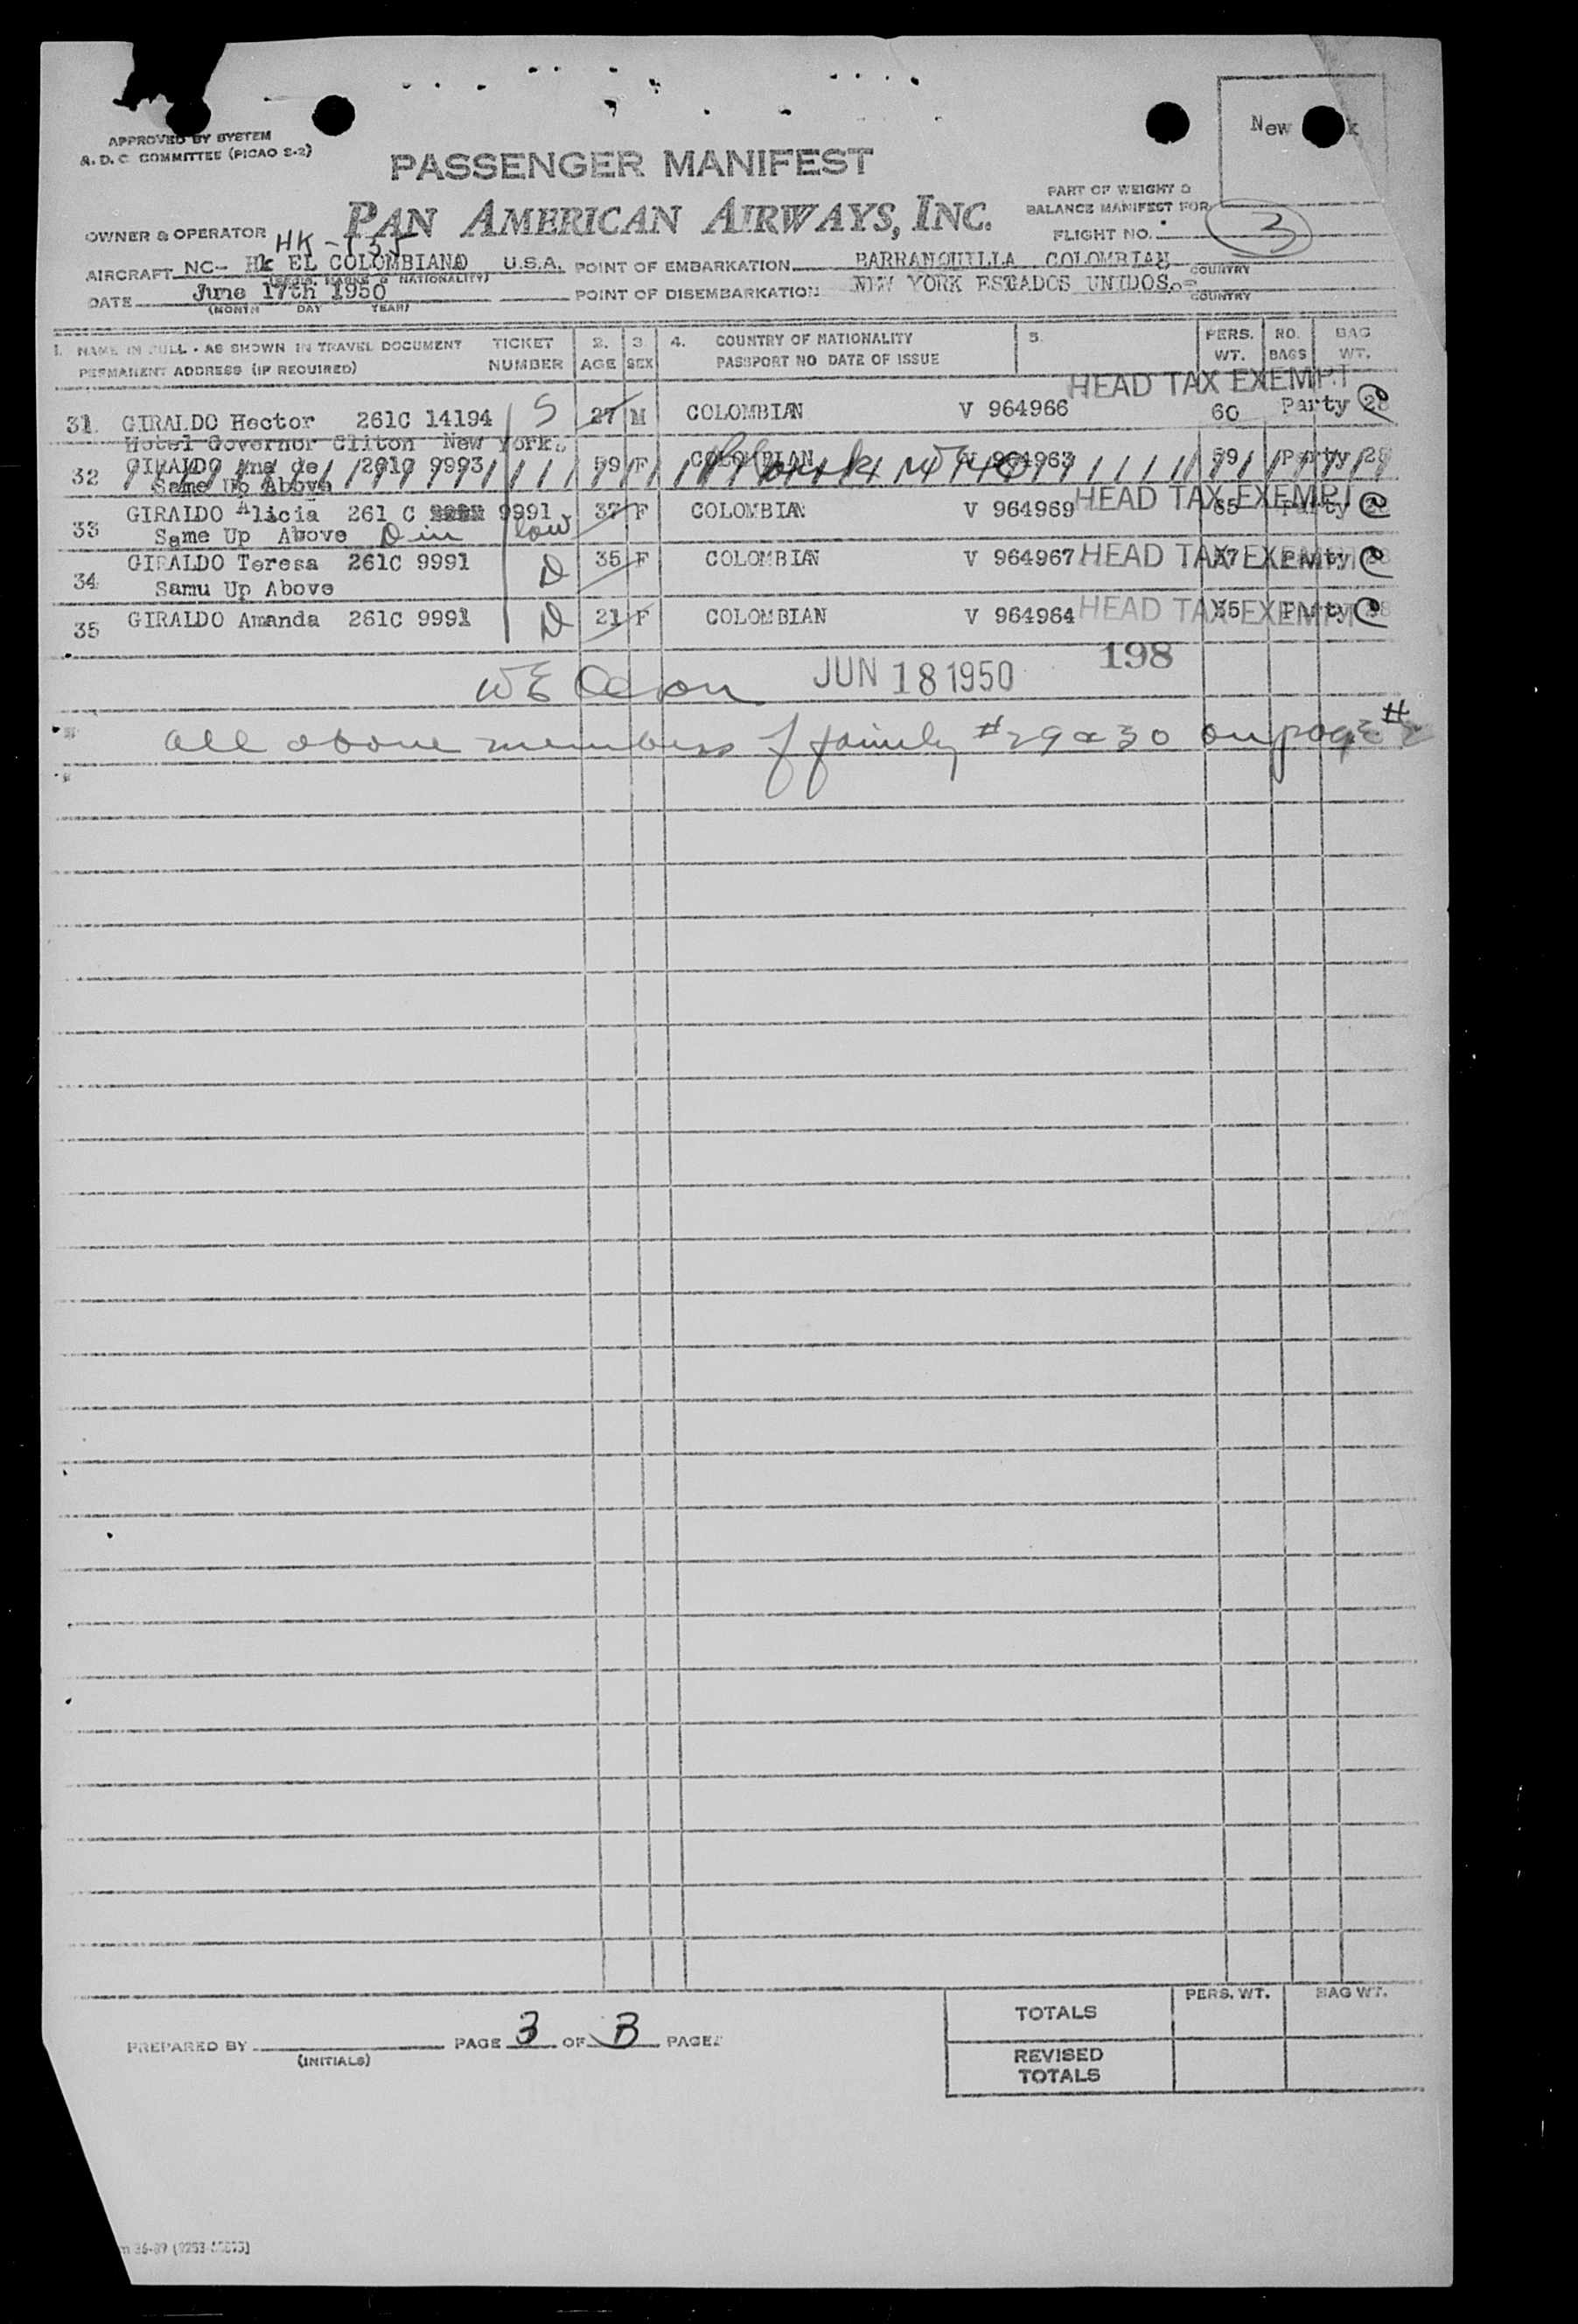 New
APPROVED BY SYSTEM
A. D. C. COMMITTEE (PICAO S-2)
PASSENGER MANIFEST
PAN AMERICAN AIRWAYS, INC.
PART OF WEIGHT &
BALANCE MANIFEST FOR
FLIGHT NO. 3
OWNER & OPERATOR HK-135
AIRCRAFT NC- Hk EL COLOMBIANO U.S.A. POINT OF EMBARKATION BARRANQUILLA COLOMBIAN
COUNTRY
DATE June 17th 1950 POINT OF DISEMBARKATION NEW YORK ESTADOS UNIDOS
(MONTH DAY YEAR) COUNTRY
1. NAME IN FULL - AS SHOWN IN TRAVEL DOCUMENT TICKET 2. 3 4. COUNTRY OF NATIONALITY 5. PERS. NO. BAG
PERMANENT ADDRESS (IF REQUIRED) NUMBER AGE SEX PASSPORT NO DATE OF ISSUE WT. BAGS WT.
HEAD TAX EXEMPT
31. GIRALDO Hector 261C 14194 S 27 M COLOMBIAN V 964966 60 Party 28
Hotel Governor Cliton New York.
32 GIRALDO Ana de 261C 9993 59 F COLOMBIAN V 964963 59 Party 28
Same Up Above
33 GIRALDO Alicia 261 C 9991 37 F COLOMBIAN V 964969 HEAD TAX EXEMPT 55 Party
Same Up Above D in low
34 GIRALDO Teresa 261C 9991 D 35 F COLOMBIAN V 964967 HEAD TAX EXEMPT 57 Party 28
Samu Up Above
35 GIRALDO Amanda 261C 9991 D 21 F COLOMBIAN V 964964 HEAD TAX EXEMPT 55 Party 28
JUN 18 1950 198
all above members of family #29 & 30 on page #2
TOTALS PERS. WT. BAG WT.
PREPARED BY PAGE 3 OF 3 PAGES
(INITIALS)
REVISED
TOTALS